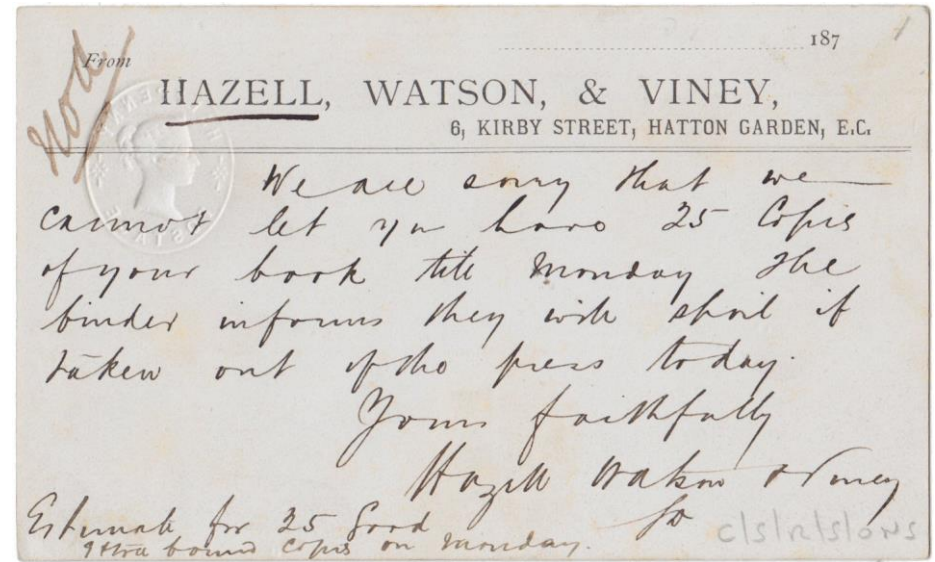 187
From
HAZELL, WATSON, & VINEY,
6, KIRBY STREET, HATTON GARDEN, E.C.
We are sorry that we
cannot let you have 25 Copies
of your book till Monday The
binder informs they will spoil if
taken out of the press today.
Yours faithfully
Hazell Watson & Viney
Estimate for 25 Good
extra bound copies on Monday.
C/S/R/S/ONS